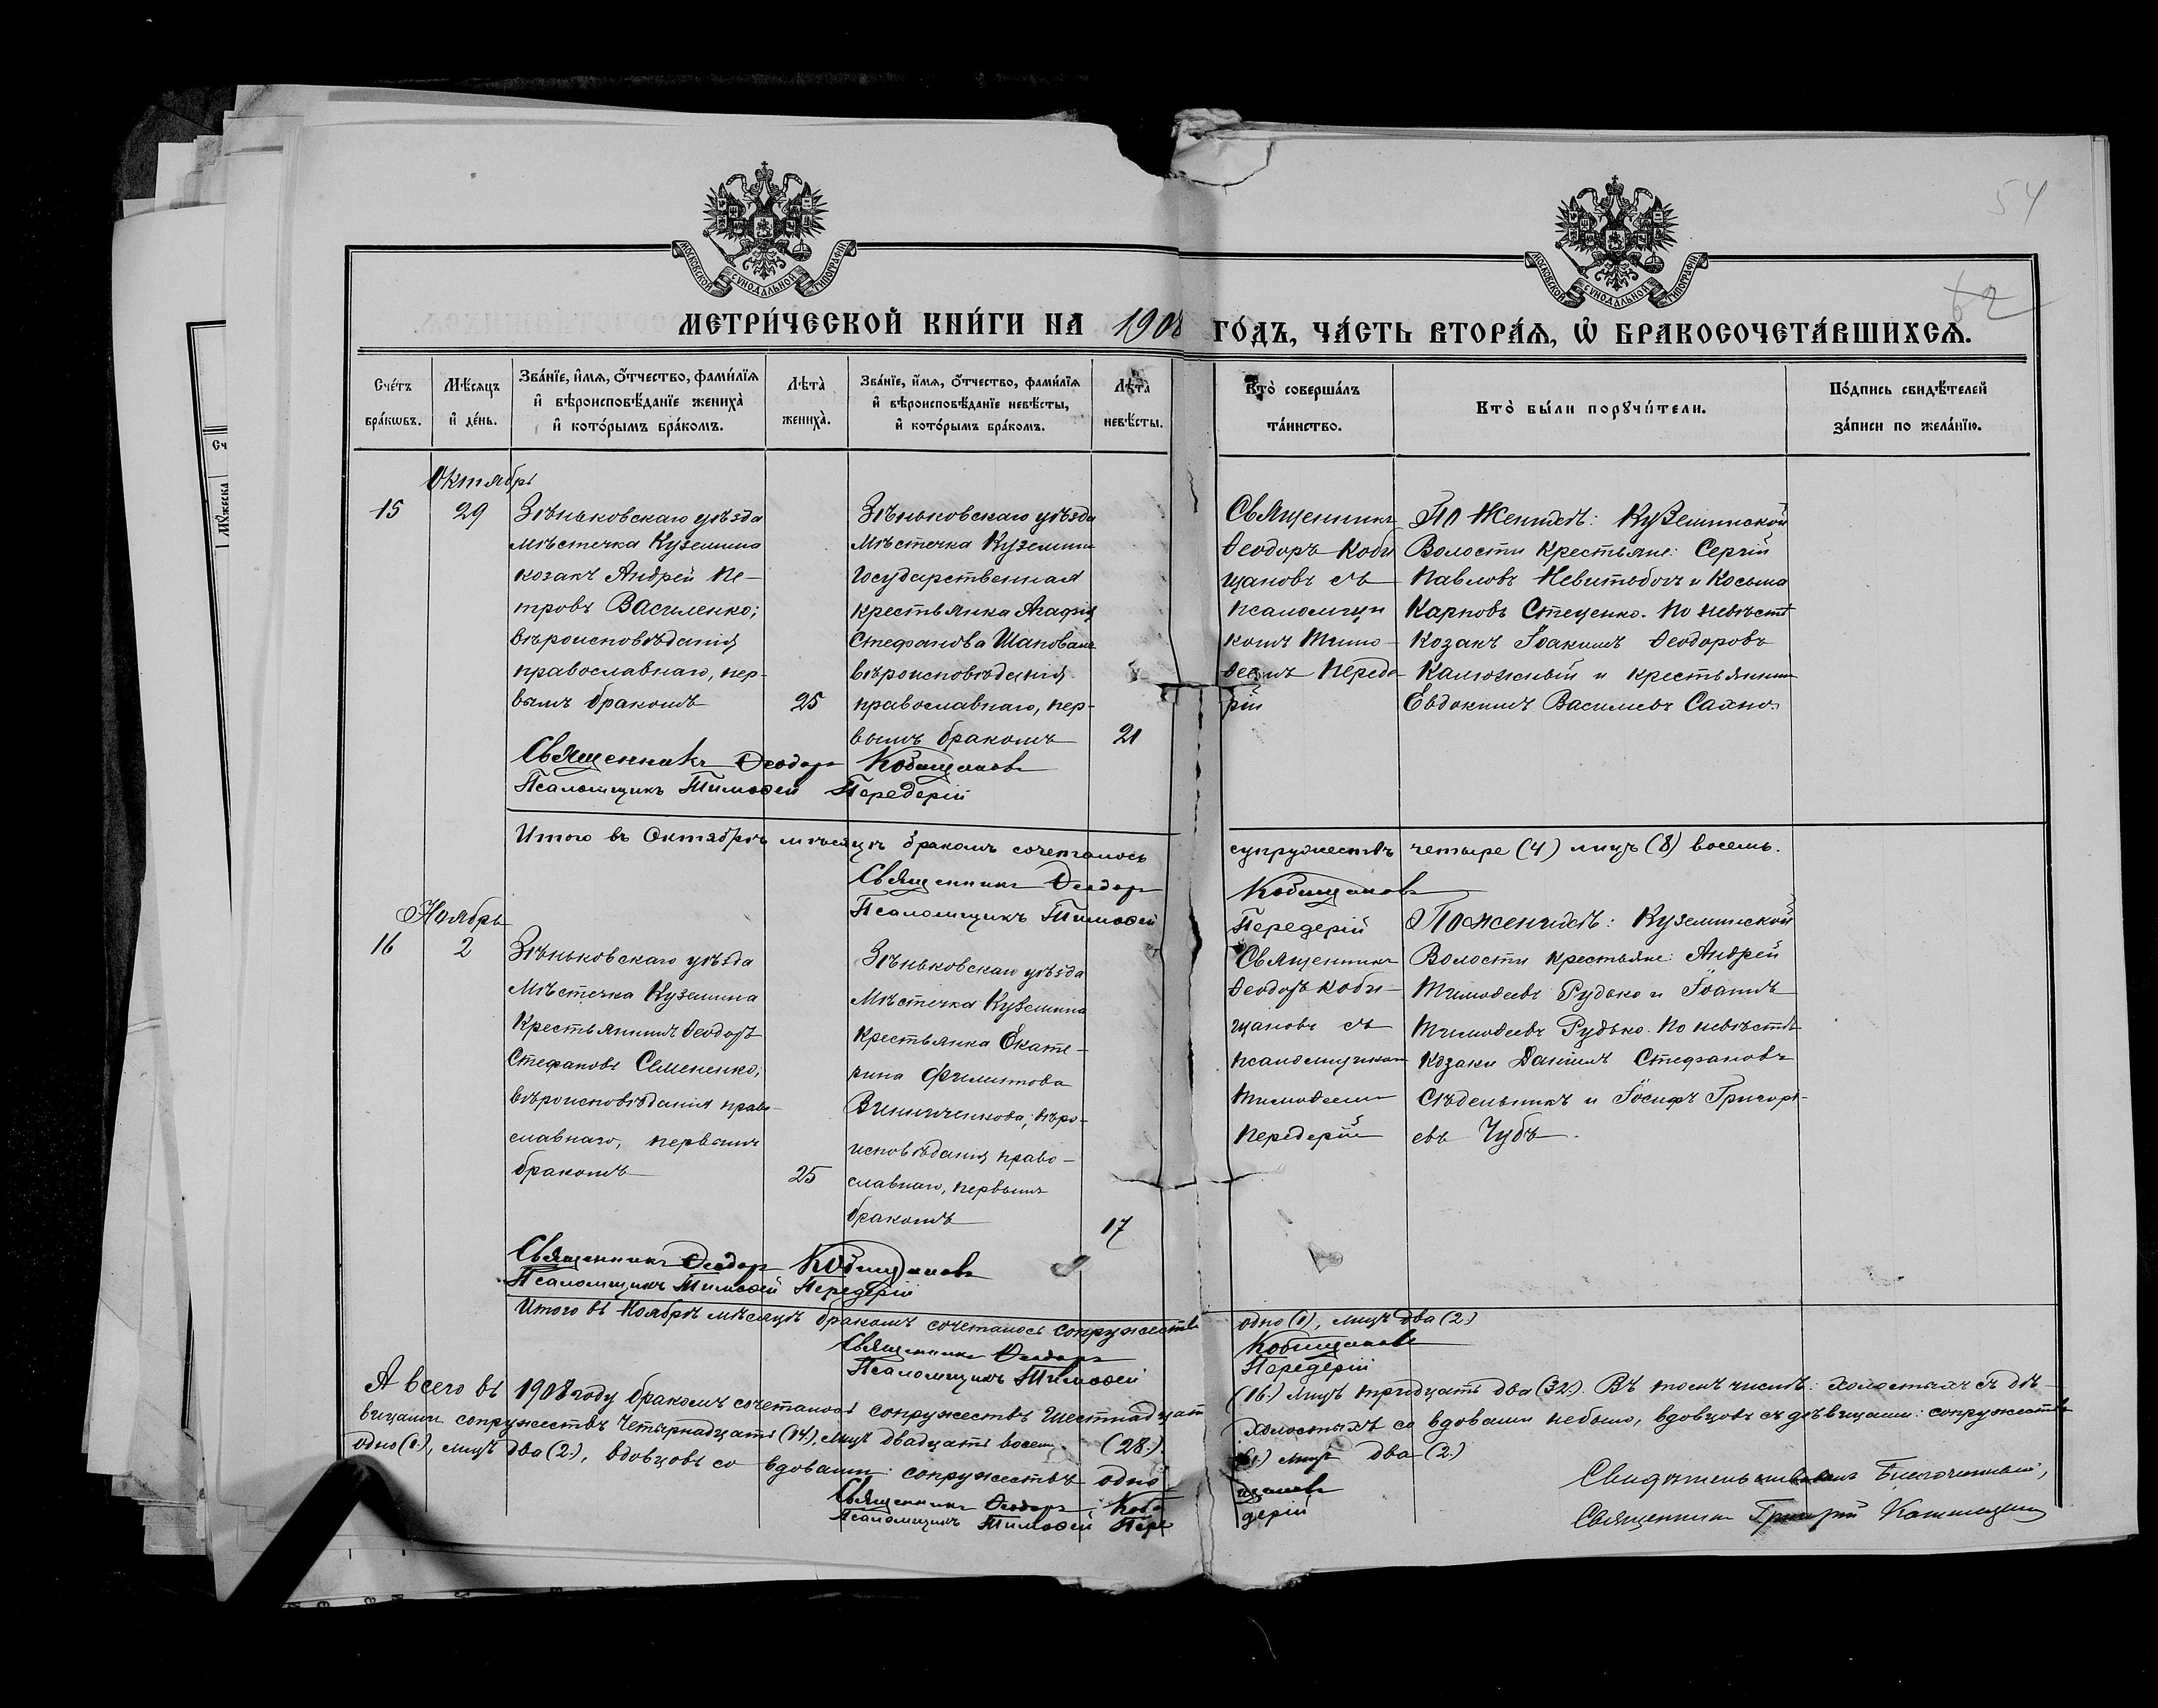 МОСКОВСКОЙ СѴНОДАЛЬНОЙ ТИПОГРАФІИ
МОСКОВСКОЙ СѴНОДАЛЬНОЙ ТИПОГРАФІИ
54
62
МЕТРИ́ЧЕСКОЙ КНИ́ГИ НА 1908 ГО́ДЪ, ЧА́СТЬ ВТОРА́Ѧ, Ѽ БРАКОСОЧЕТА́ВШИХСѦ.
Счётъ бра́кѡвъ.
Мѣ́сѧцъ и҆ де́нь.
Зва́нїе, и҆́мѧ, ѻ҆́тчество, фами́лїѧ
и҆ вѣроисповѣ́данїе жениха̀
и҆ кото́рымъ бра́комъ.
Лѣ́та̀ жениха̀.
Зва́нїе, и҆́мѧ, ѻ҆́тчество, фами́лїѧ
и҆ вѣроисповѣ́данїе невѣ́сты,
и҆ кото́рымъ бра́комъ.
Лѣ́та̀ невѣ́сты.
Кто̀ соверша́лъ та́инство.
Кто̀ бы́ли порꙋчи́тели.
По́дпись свидѣ́телей за́писи по жела́нїю.
Октябрь
15
29
Зѣньковскаго уѣзда
мѣстечка Куземина
козакъ Андрей Пе-
тровъ Василенко;
вѣроисповѣданія
православнаго, пер-
вымъ бракомъ
25
Зѣньковскаго уѣзда
мѣстечка Куземина
Государственная
крестьянка Агафія
Стефанова Шаповал
вѣроисповѣданія
православнаго, пер-
вымъ бракомъ
21
Священникъ
Ѳеодоръ Коби
щановъ съ
псаломщи
комъ Тимо-
ѳеемъ Переде
рій
По Женихѣ: Куземинской
Волости крестьяне: Сергій
Павловъ и Косьма
Карповъ Стеценко. По невѣстѣ
Козакъ Іоакимъ Ѳеодоровъ
Калюжный и крестьянинъ
Евдокимъ Васильевъ Сахно.
Священникъ Ѳеодоръ Кобищановъ
Псаломщикъ Тимоѳей Передерій
Итого въ Октябрѣ мѣсяцѣ бракомъ сочеталось супружествъ четыре (4) лицъ (8) восемь.
Священникъ Ѳеодоръ Кобищановъ
Псаломщикъ Тимоѳей Передерій
Ноябрь
16
2
Зѣньковскаго уѣзда
Мѣстечка Куземина
Крестьянинъ Ѳеодоръ
Стефановъ Семененко;
вѣроисповѣданія право-
славнаго, первымъ
бракомъ
25
Зѣньковскаго уѣзда
Мѣстечка Куземина
крестьянка Екате-
рина Филиппова
Винниченкова; вѣро-
исповѣданія право-
славнаго, первымъ
бракомъ
17
Священникъ
Ѳеодоръ Коби-
щановъ съ
псаломщикомъ
Тимоѳеемъ
Передерій
По женихѣ: Куземинской
Волости крестьяне: Андрей
Тимоѳеевъ Рудько и Іоаннъ
Тимоѳеевъ Рудько. По невѣстѣ
Козаки Даніилъ Стефановъ
Сѣдельникъ и Іосифъ Григорь-
евъ Чубъ.
Священникъ Ѳеодоръ Кобищановъ
Псаломщикъ Тимоѳей Передерій
Итого въ Ноябрѣ мѣсяцѣ бракомъ сочеталось сопружество одно (1), лицъ два (2.)
Священникъ Ѳеодоръ Кобищановъ
Псаломщикъ Тимоѳей Передерій
А всего въ 1908 году бракомъ сочеталось сопружествъ Шестнадцать (16.) лицъ тридцать два (32.). Въ томъ числѣ: холостыхъ съ дѣ-
вицами сопружествъ Четырнадцать (14.), лицъ двадцать восемь. (28.). Холостыхъ со вдовами небыло, вдовцовъ съ дѣвицами: сопружество
одно (1.), лицъ два (2.), вдовцовъ со вдовами: сопружествъ одно (1.) лицъ два (2.)
Священникъ Ѳеодоръ Кобищановъ
Псаломщикъ Тимоѳей Передерій
Благочинный,
Священникъ Григорій